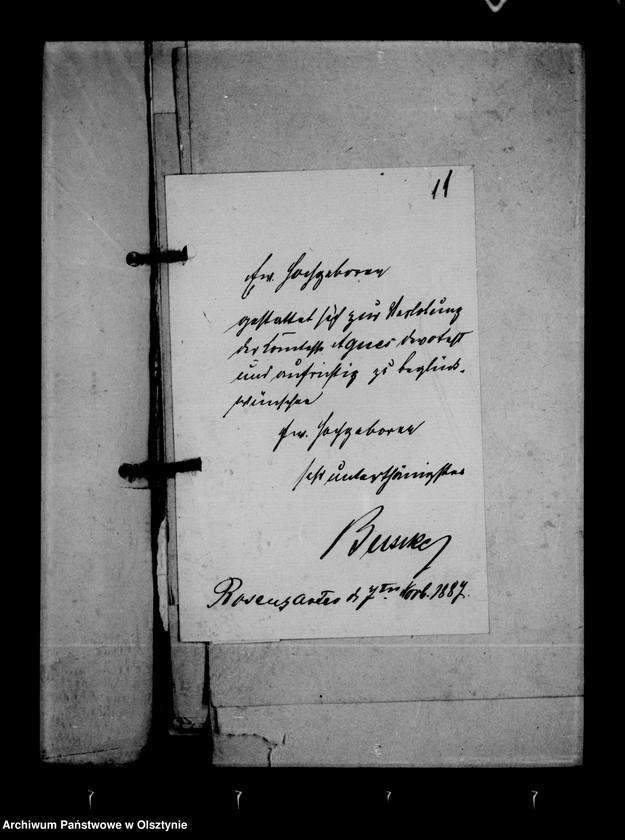 11
Ew. Hochgeboren
gestattet sich zur Verlobung
der Comtesse Agnes devotest
und aufrichtig zu beglück-
wünschen
Ew. Hochgeboren
sehr unterthänigster
Rosengarten d. 7ten Novb. 1887.
Archiwum Państwowe w Olsztynie